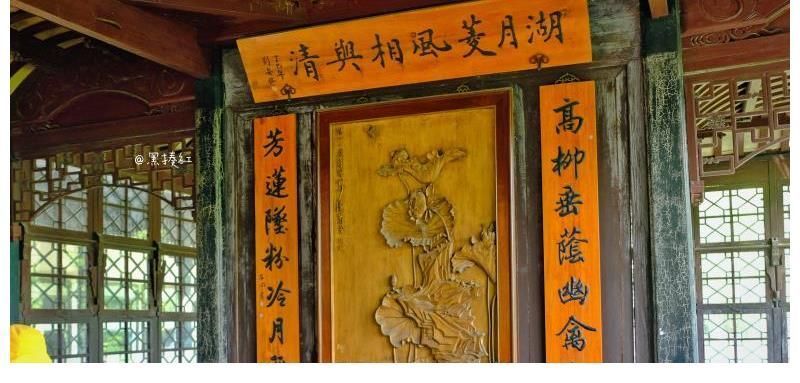 湖月菱風相與清
高柳垂蔭幽禽
芳蓮墜粉冷月
@黑揍紅